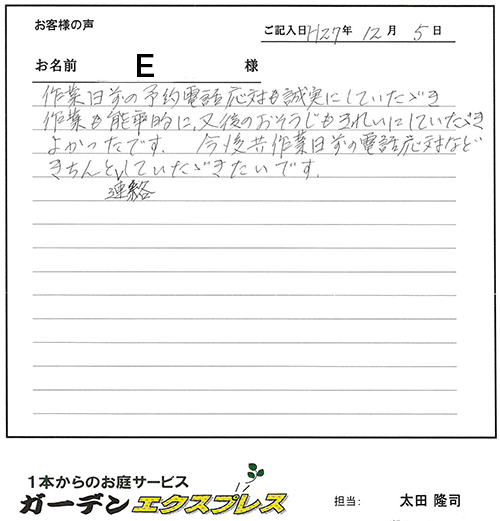 お客様の声
ご記入日 H27年 12月 5日
お名前 E 様
作業日前の予約電話応対も誠実にしていただき
作業も能率的に、又後のおそうじもきれいにしていただき
よかったです。 今後共作業日前の電話応対など
きちんと連絡していただきたいです。
1本からのお庭サービス
ガーデンエクスプレス
担当: 太田 隆司